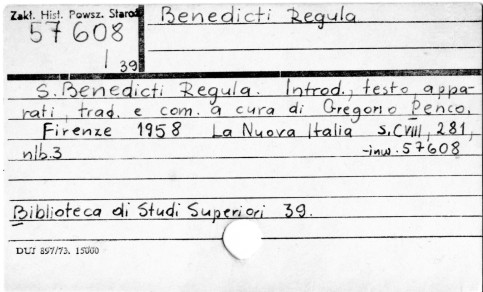 Zakł. Hist. Powsz. Staroż
57 608
139
Benedicti Regula
S. Benedicti Regula. Introd., testo, appa-
rati, trad. e com. a cura di Gregorio Penco.
Firenze 1958 La Nuova Italia s. CVIII, 281,
nlb. 3
-inw. 57608
Biblioteca di Studi Superiori 39.
DUJ 897/73. 15000